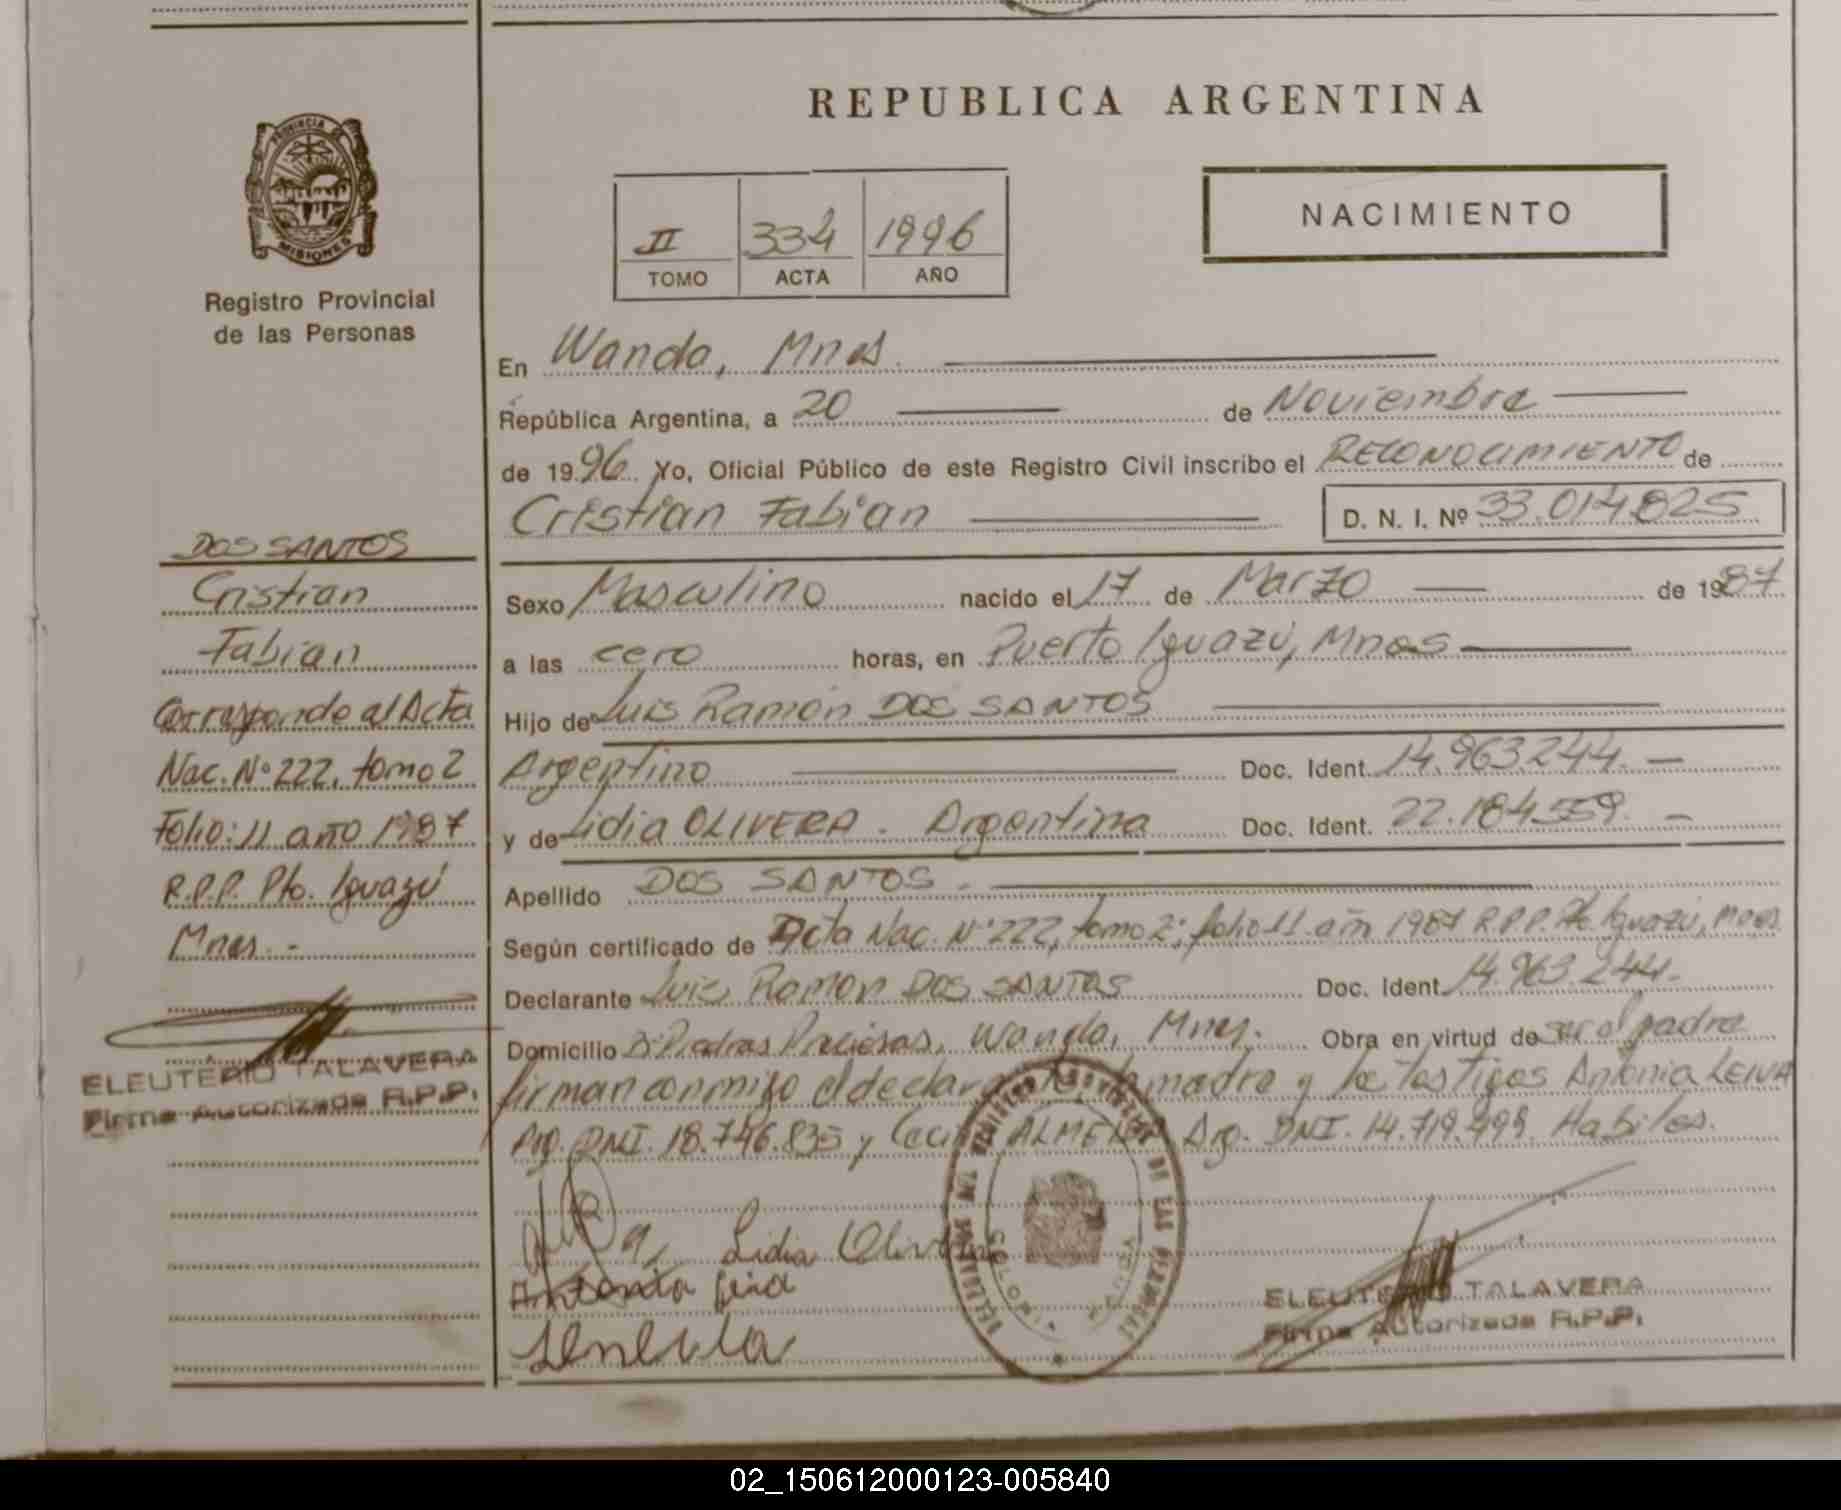 REPUBLICA ARGENTINA
PROVINCIA DE
MISIONES
Registro Provincial
de las Personas
II 334 1996
TOMO ACTA AÑO
NACIMIENTO
En Wanda, Mnes.
República Argentina, a 20 de Noviembre
de 1996. Yo, Oficial Público de este Registro Civil inscribo el RECONOCIMIENTO de
Cristian Fabian D. N. I. Nº 33.014.825
Sexo Masculino nacido el 17 de Marzo de 1987
a las cero horas, en Puerto Iguazú, Mnes
Hijo de Luis Ramón DOS SANTOS
Argentino Doc. Ident. 14.963.244.
y de Lidia OLIVERA. Argentina Doc. Ident. 22.184.559.
Apellido DOS SANTOS.
Según certificado de Acta Nac. Nº 222, tomo 2; folio 11 año 1987 R.P.P. Pto. Iguazú, Mnes.
Declarante Luis Ramon DOS SANTOS Doc. Ident. 14.963.244.
Domicilio Bº Piedras Preciosas, Wanda, Mnes. Obra en virtud de ser el padre
firman conmigo el declarante, la madre y los testigos Antonia LEIVA
Arg. DNI. 18.746.835 y Arg. DNI. 14.719.499. Habiles.
Lidia Olivera
Antonia Leiva
DE LAS PERSONAS
WANDA
ELEUTERIO TALAVERA
Firma Autorizada R.P.P.
DOS SANTOS
Cristian
Fabian
Corresponde al Acta
Nac. Nº 222, tomo 2
Folio: 11 año 1987
R.P.P. Pto. Iguazú
Mnes.-
ELEUTERIO TALAVERA
Firma Autorizada R.P.P.
02_150612000123-005840